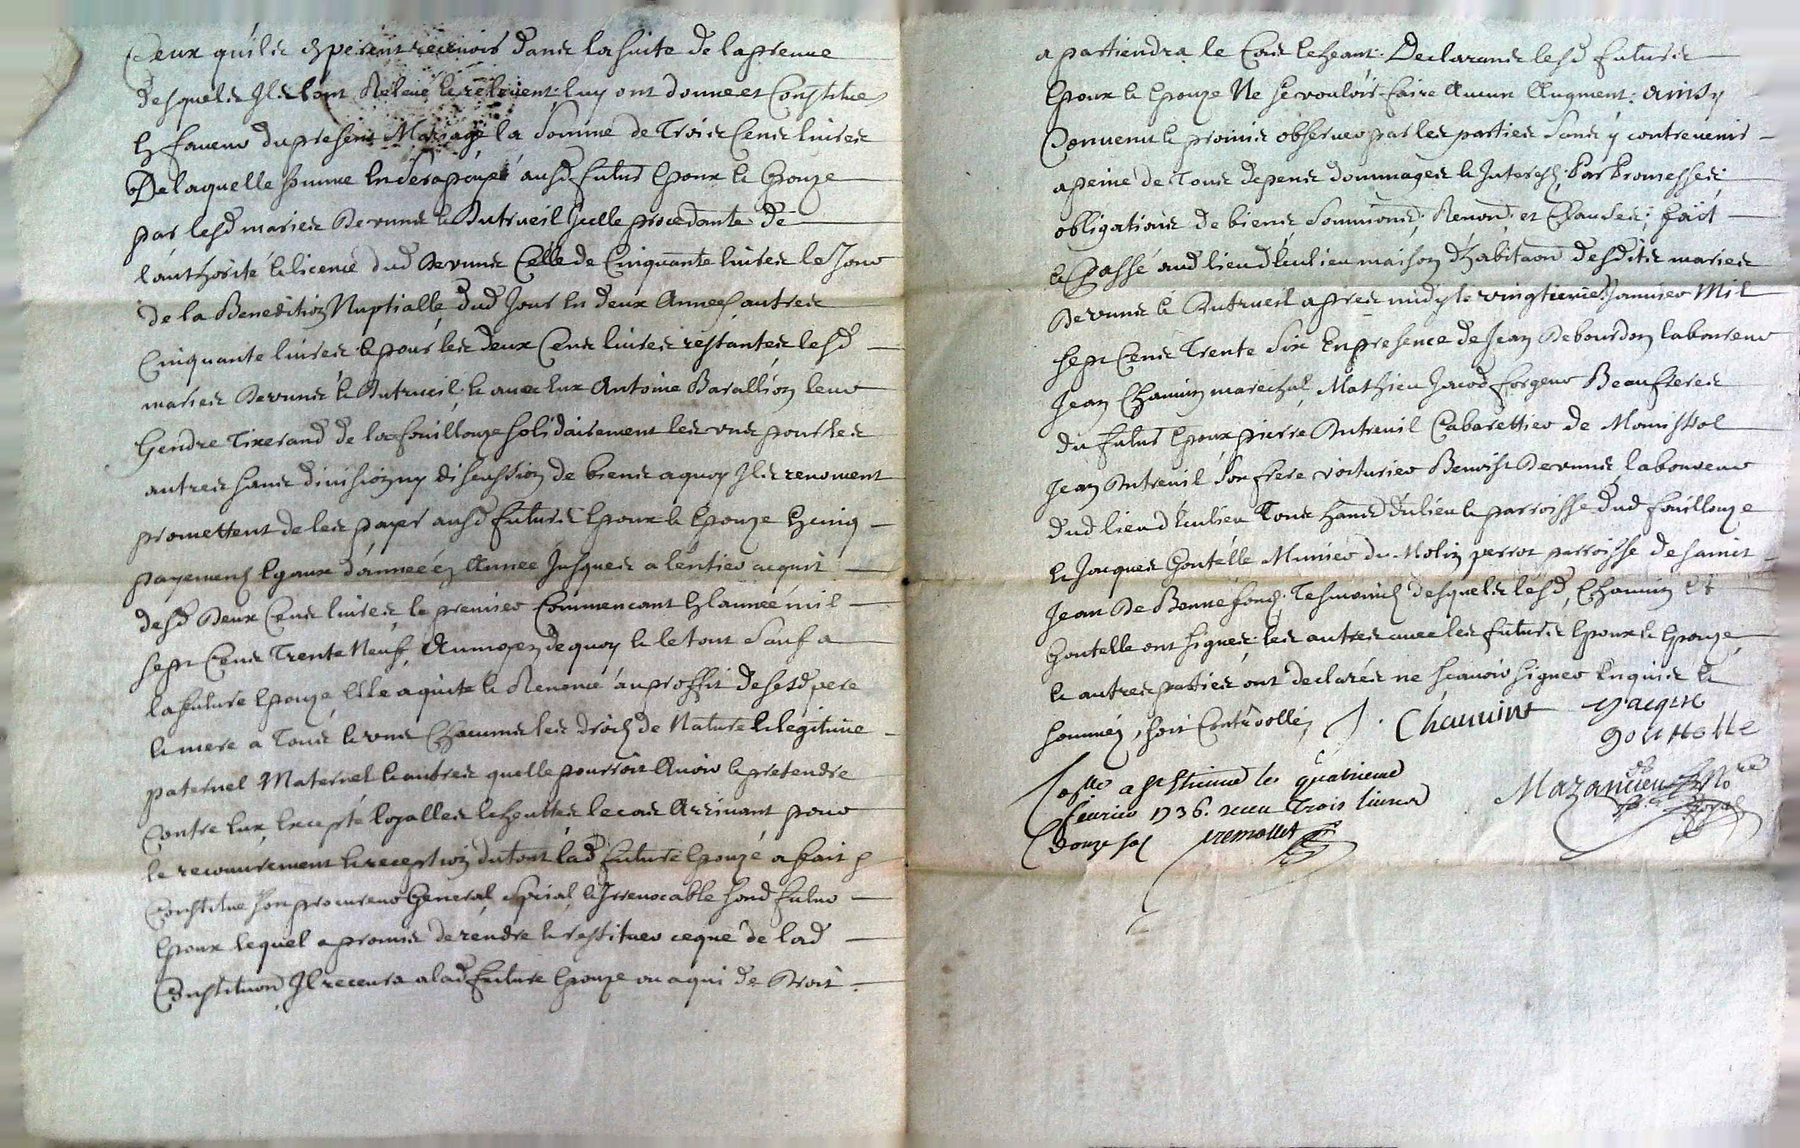 Ceux qu'ils esperent recevoir dans la suite de la preuve
desquels Ils l'ont Relevé & relevent: luy ont donne et Constitue
En faveur du present Mariage la somme de Trois Cens livres
De laquelle somme En sera payé ausd futurs Epoux & Epouze
par lesd mariez Devuns & Dutrueil Icelle procedante de
l'authorité & licence dud Devuns Celle de Cinquante livres le Jour
de la Benediction Nuptialle, dud Jour En deux Années autres
Cinquante livres & pour les deux Cens livres restantes lesd
mariez Devuns & Dutrueil, & avec Eux Antoine Barallion leur
Gendre Tixerand de la fouillouze solidairement les uns pour les
autres sans division ny discussion de biens a quoy Ils renoncent
promettent de les payer ausd futurs Epoux & Epouze En cinq
payemens Egaux d'année en Année Jusques a l'entier acquit
desd Deux Cens livres, le premier Commencant En l'année mil
sept Cens Trente Neuf, Au moyen de quoy & le tout Sauf a
la future Epouze, Elle a quitte & Renoncé au proffit de sesd pere
& mere a Tous & uns Chacuns les droits de Nature & legitime
paternel Maternel, & autres quelle pourroit Avoir & pretendre
Contre Eux, Excepté loyalles Echuttes le cas Arrivant pour
le recouvrement & reception du tout lad future Epouze a fait &
Constitue son procureur General, special, & Irrevocable sond futur
Epoux lequel a promis de rendre & restituer ce que de lad
Constitution Il recevra a lad future Epouze ou a qui de Droit
apartiendra le Cas Echeant: Declarants lesd futurs
Epoux & Epouze Ne se vouloir faire Aucun Augment: Ainsy
Convenu & promis observer par les parties Sans y contrevenir
a peine de Tous depens dommages & Interests, Par Promesses,
obligations de biens Soumions, Renons, et Clauses; fait
& Passé aud lieu d'Eculieu maison d'habitaon desdits mariez
Devuns & Dutrueil apres midy le vingtieme Janvier Mil
sept Cens Trente Six En presence de Jean Debourdon laboureur
Jean Chamin marechal, Mathieu Jacod forgeur Beaufreres
du futur Epoux, pierre Dutreuil Cabarettier de Monistrol
Jean Dutreuil Son frere voiturier Benoist Devuns, laboureur
dud lieu d'Eculieu Tous hans dud lieu & parroisse dud fouillouze
& Jacques Goutelle Munier du Molin perrot parroisse de saint
Jean De Bonnefond, Tesmoins desquels lesd, Chamin Et
Goutelle ont signez: les autres avec les futurs Epoux & Epouze,
& autres parties ont declarés ne sçavoir signer Enquis &
sommés, soit Contrôllé, J. Chamint Jacque
Gouttelle
Collé a St Etienne le quatrieme
fevrier 1736. receu Trois livres Mazancieux Nore
Douze sols Royal